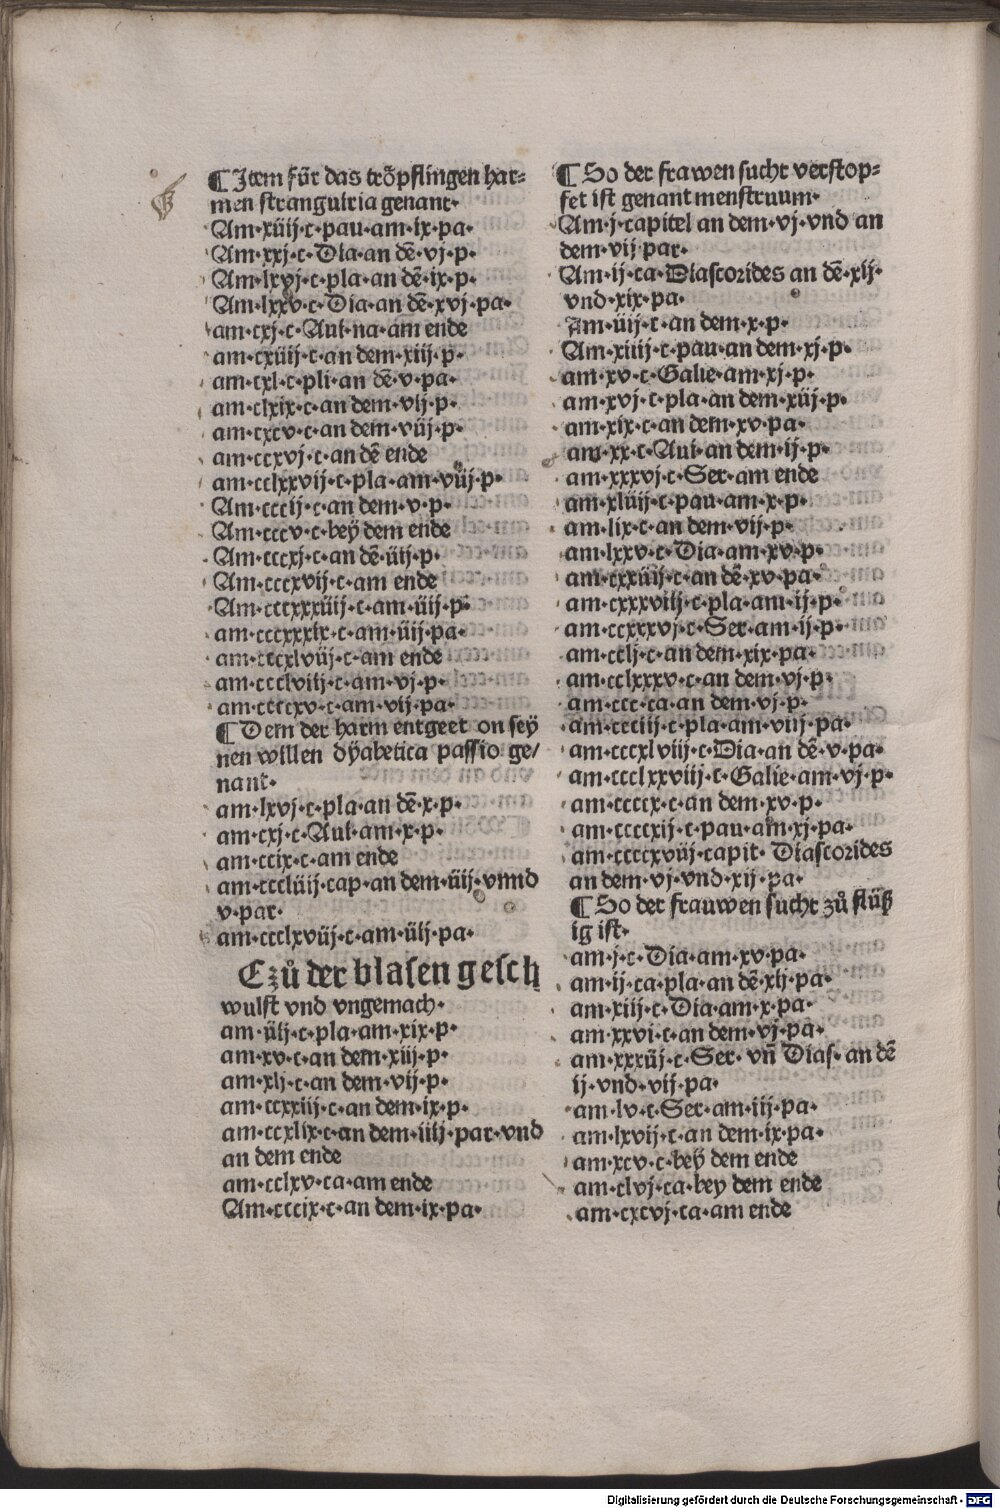 ¶ Item für das tröpflingen har⸗
men stranguiria genant·
Am·xiiij·c·pau·am·ix·pa·
Am·xxj·c·Dia·an dē·vj·p·
Am·lxvj·c·pla·an dē·ix·p·
Am·lxxv·c·Dia·an dē·xvj·pa·
am·cxj·c·Aui·na·am ende
am·cxiiij·c·an dem·xiij·p·
am·cxl·c·pli·an dē·v·pa·
am·clxix·c·an dem·vij·p·
am·cxcv·c·an dem·viij·p·
am·ccxvj·c·an dē ende
am·cclxxvij·c·pla·am·viij·p·
Am·cccij·c·an dem·v·p·
Am·cccv·c·beÿ dem ende
Am·cccxj·c·an dē·iiij·p·
Am·cccxvij·c·am ende
Am·cccxxxiiij·c·am·iiij·p·
am·cccxxxix·c·am·iiij·pa·
am·cccxlviij·c·am ende
am·ccclviij·c·am·vj·p·
am·ccccxv·c·am·vij·pa·
¶ Dem der harm entgeet on seÿ
nen willen dÿabetica passio ge/
nant·
am·lxvj·c·pla·an dē·x·p·
am·cxj·c·Aui·am·x·p·
am·ccix·c·am ende
am·cccliiij·cap·an dem·iiij·vnnd
v·par·
am·ccclxviij·c·am·iiij·pa·
Czů der blasen gesch
wulst vnd vngemach·
am·iiij·c·pla·am·xix·p·
am·xv·c·an dem·xiij·p·
am·xlj·c·an dem·vij·p·
am·ccxxiij·c·an dem·ix·p·
am·ccxlix·c·an dem·iiij·par·vnd
an dem ende
am·cclxv·ca·am ende
Am·cccix·c·an dem·ix·pa·
¶ So der frawen sucht verstop⸗
fet ist genant menstruum·
Am·j·capitel an dem·vj·vnd an
dem·vij·par·
Am·ij·ca·Diascorides an dē·xij·
vnd·xix·pa·
Am·iiij·c·an dem·x·p·
Am·xiiij·c·pau·an dem·xj·p·
am·xv·c·Galie·am·xj·p·
am·xvj·c·pla·an dem·xiij·p·
am·xix·c·an dem·xv·pa·
am·xx·c·Aui·an dem·ij·p·
am·xxxvj·c·Ser·am ende
am·xliiij·c·pau·am·x·p·
am·lix·c·an dem·vij·p·
am·lxxv·c·Dia·am·xv·p·
am·cxxiiij·c·an dē·xv·pa·
am·cxxxviij·c·pla·am·ij·p·
am·ccxxxvj·c·Ser·am·ij·p·
am·cclj·c·an dem·xix·pa·
am·cclxxxv·c·an dem·vj·p·
am·ccc·ca·an dem·vj·p·
am·ccciij·c·pla·am·viij·pa·
am·cccxlviij·c·Dia·an dē·v·pa·
am·ccclxxviij·c·Galie·am·vj·p·
am·ccccx·c·an dem·xv·p·
am·ccccxij·c·pau·am·xj·pa·
am·ccccxviij·capit· Diascorides
an dem·vj·vnd·xij·pa·
¶ So der frauwen sucht zů flüß
ig ist·
am·j·c·Dia·am·xv·pa·
am·ij·ca·pla·an dē·xlj·pa·
am·xiij·c·Dia·am·x·pa·
am·xxvi·c·an dem·vj·pa·
am·xxxiij·c·Ser·vn̄ Dias·an dē
ij·vnd·vij·pa·
am·lv·c·Ser·am·iij·pa·
am·lxvij·c·an dem·ix·pa·
am·xcv·c·beÿ dem ende
am·clvj·ca·bey dem ende
am·cxcvj·ca·am ende
Digitalisierung gefördert durch die Deutsche Forschungsgemeinschaft - DFG